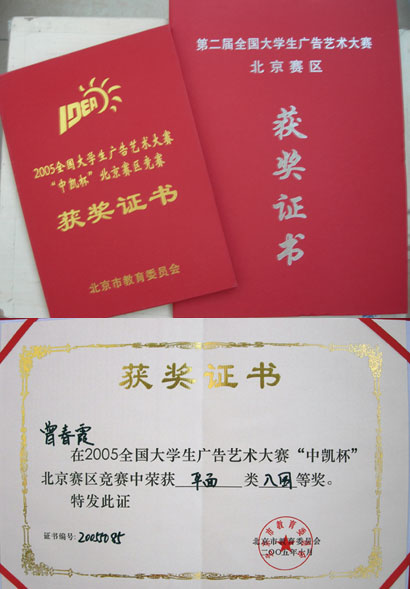 IDEA
2005全国大学生广告艺术大赛
“中凯杯”北京赛区竞赛
获奖证书
北京市教育委员会
第二届全国大学生广告艺术大赛
北京赛区
获奖证书
获奖证书
曾春霞
在2005全国大学生广告艺术大赛“中凯杯”
北京赛区竞赛中荣获 平面 类 入围 等奖。
特发此证
证书编号:
北京市教育委员会